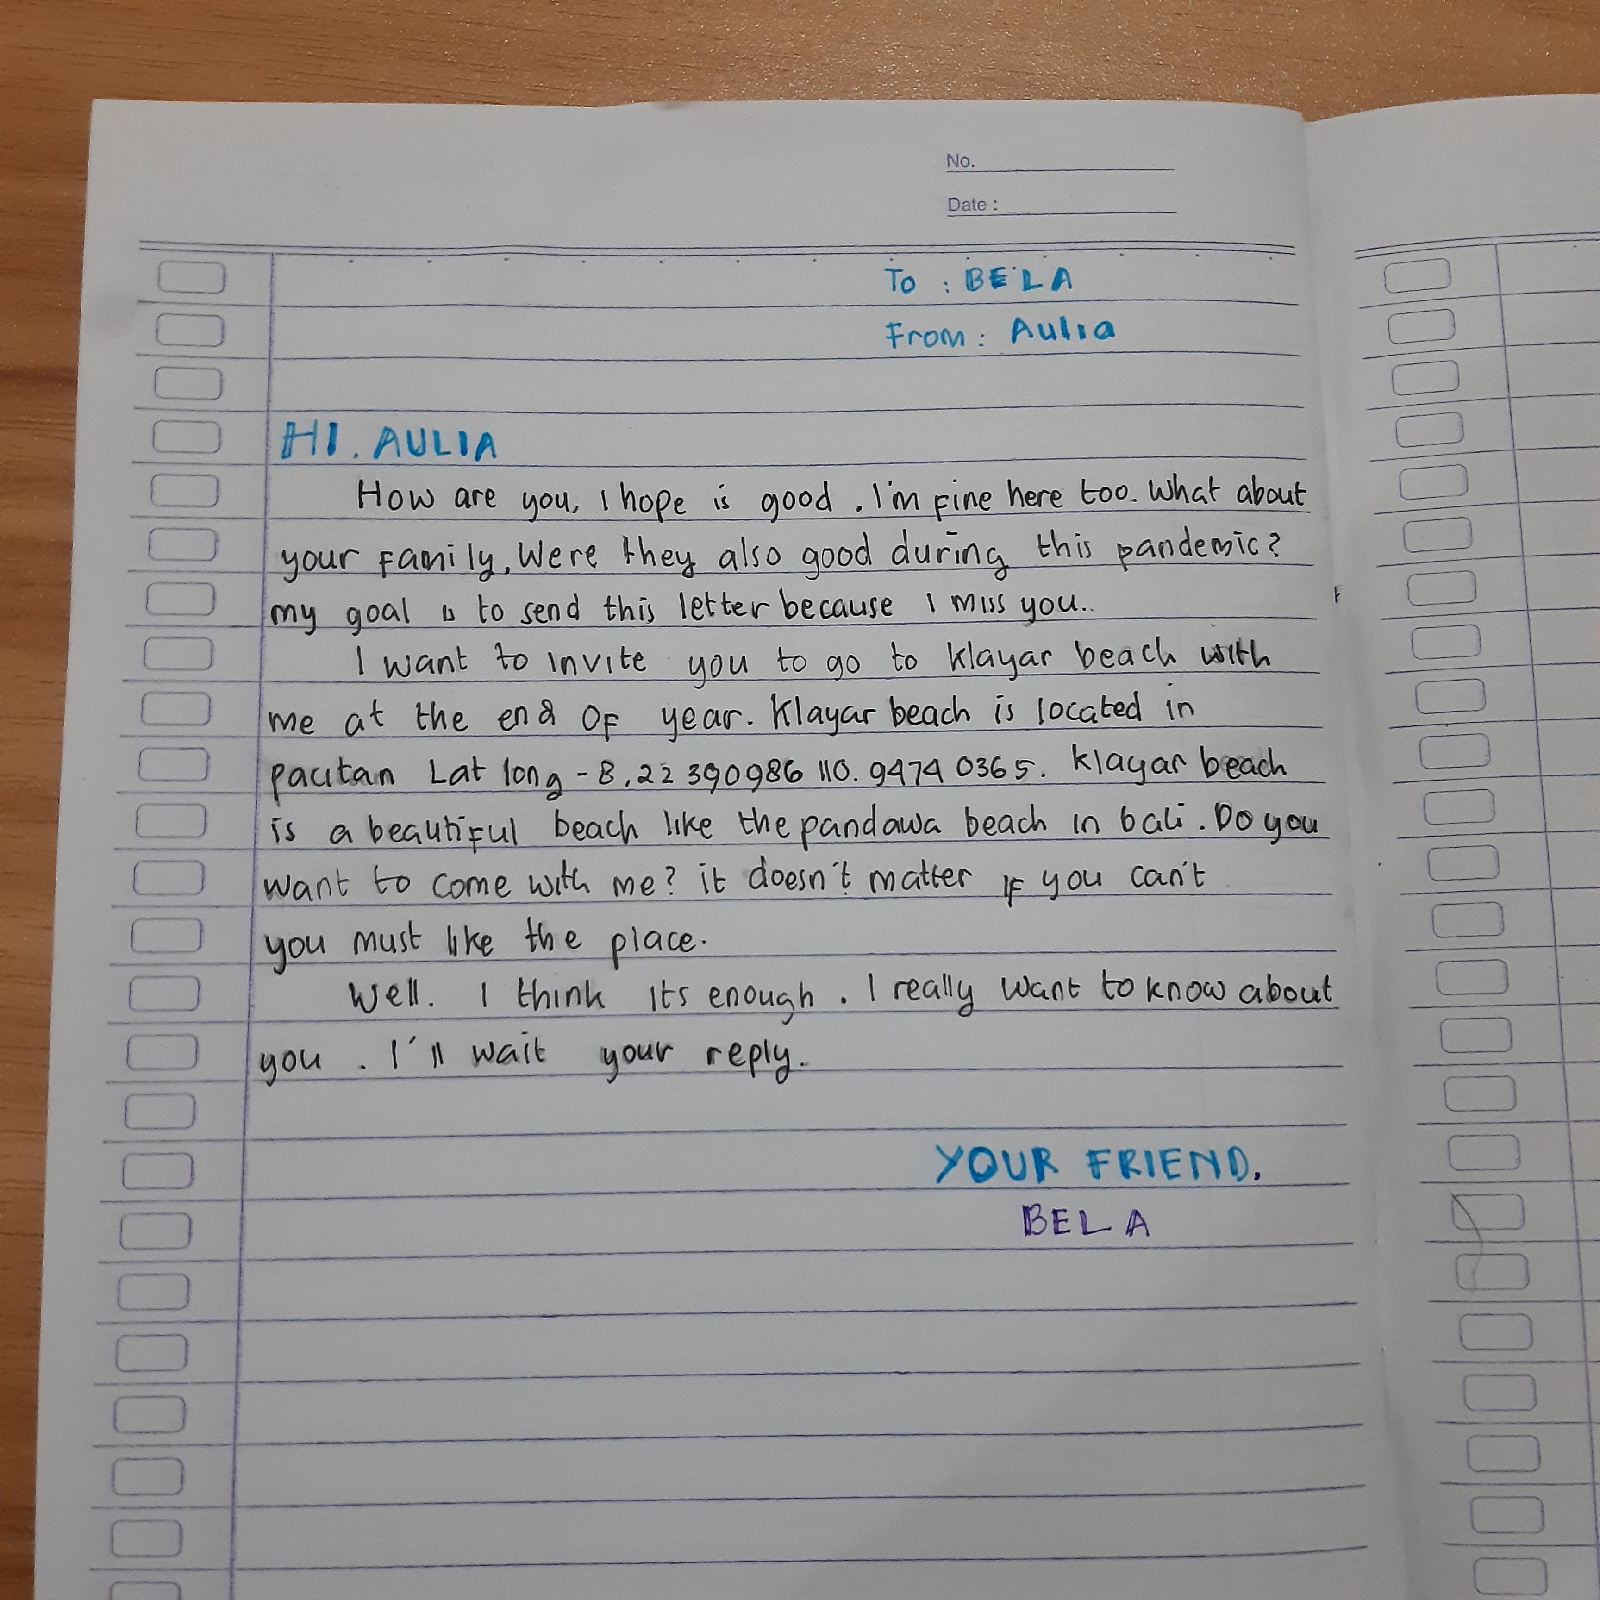 No.
Date :
To : BELA
From : Aulia
HI. AULIA
How are you, I hope is good . I'm fine here too. What about
your family, Were they also good during this pandemic?
my goal is to send this letter because I miss you..
I want to invite you to go to Klayar beach with
me at the end of year. Klayar beach is located in
pacitan Lat long -8.22390986 110.94740365. Klayar beach
is a beautiful beach like the pandawa beach in bali . Do you
want to come with me? it doesn't matter if you can't
you must like the place.
Well. I think its enough . I really want to know about
you . I'll wait your reply.
YOUR FRIEND.
BELA